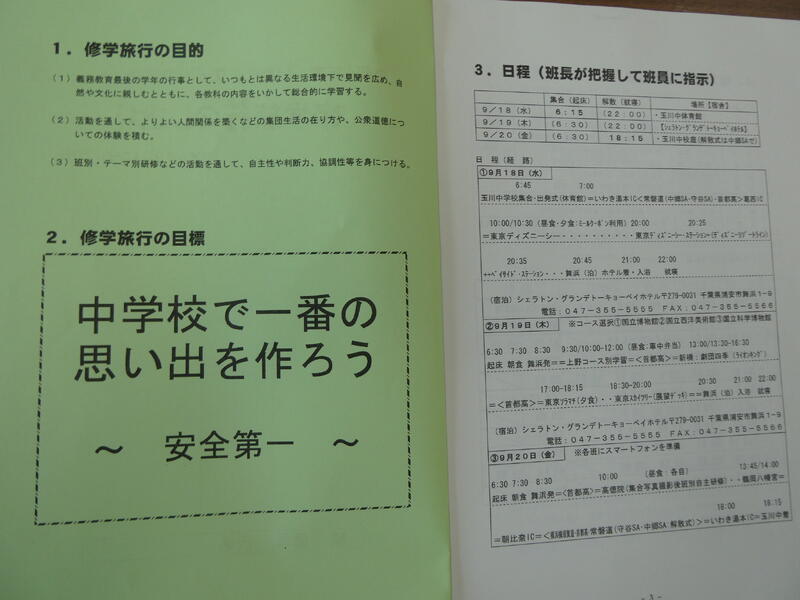 1．修学旅行の目的
（1）義務教育最後の学年の行事として、いつもとは異なる生活環境下で見聞を広め、自
然や文化に親しむとともに、各教科の内容をいかして総合的に学習する。
（2）活動を通して、よりよい人間関係を築くなどの集団生活の在り方や、公衆道徳につ
いての体験を積む。
（3）班別・テーマ別研修などの活動を通して、自主性や判断力、協調性等を身につける。
2．修学旅行の目標
中学校で一番の
思い出を作ろう
～　安全第一　～
3．日程（班長が把握して班員に指示）
集合（起床） 解散（就寝） 場所【宿舎】
9／18（水） 6：15 （22：00） ・玉川中体育館
9／19（木） （6：30） （22：00） 【シェラトン・グランデトーキョーベイホテル】
9／20（金） （6：30） 18：15 ・玉川中校庭（解散式は中郷SAで）
日 程（経 路）
①9月18日（水）
6:45 7:00
玉川中学校集合・出発式（体育館）＝いわき湯本IC＜常磐道（中郷SA・守谷SA）・首都高＞葛西IC
10:00/10:30（昼食・夕食：ミールクーポン利用）20:00 20:25
＝東京ディズニーシー・・・・・・・・・・東京ディズニーシー・ステーション＋（ディズニーリゾートライン）
20:35 20:45 21:00 22:00
＋＋ベイサイド・ステーション・・・舞浜（泊）ホテル着・入浴 就寝
（宿泊）シェラトン・グランデトーキョーベイホテル〒279-0031 千葉県浦安市舞浜1－9
電話：047－355－5555 FAX：047－355－5566
②9月19日（木） ※コース選択①国立博物館②国立西洋美術館③国立科学博物館
6:30 7:30 8:30 9:30/10:00-12:00（昼食：車中弁当） 13:00/13:30-16:30
起床 朝食 舞浜発＝＝上野コース別学習＝＜首都高＞＝新橋：劇団四季（ライオンキング）
17:00-18:15 18:30-20:00 20:30 21:00 22:00
＝＜首都高＞＝東京ソラマチ（夕食）・・東京スカイツリー（展望デッキ）＝＝舞浜（泊）入浴 就寝
（宿泊）シェラトン・グランデトーキョーベイホテル〒279-0031 千葉県浦安市舞浜1－9
電話：047－355－5555 FAX：047－355－5566
③9月20日（金） ※各班にスマートフォンを準備
6:30 7:30 8:30 10:00 （昼食：各自） 13:45/14:00
起床 朝食 舞浜発＝＜首都高＞＝高徳院（集合写真撮影後班別自主研修）・・鶴岡八幡宮＝
18:00 18:15
＝朝比奈IC＝＜横浜横須賀道・首都高・常磐道（守谷SA・中郷SA：解散式）＞＝いわき湯本IC＝玉川中着
－3－